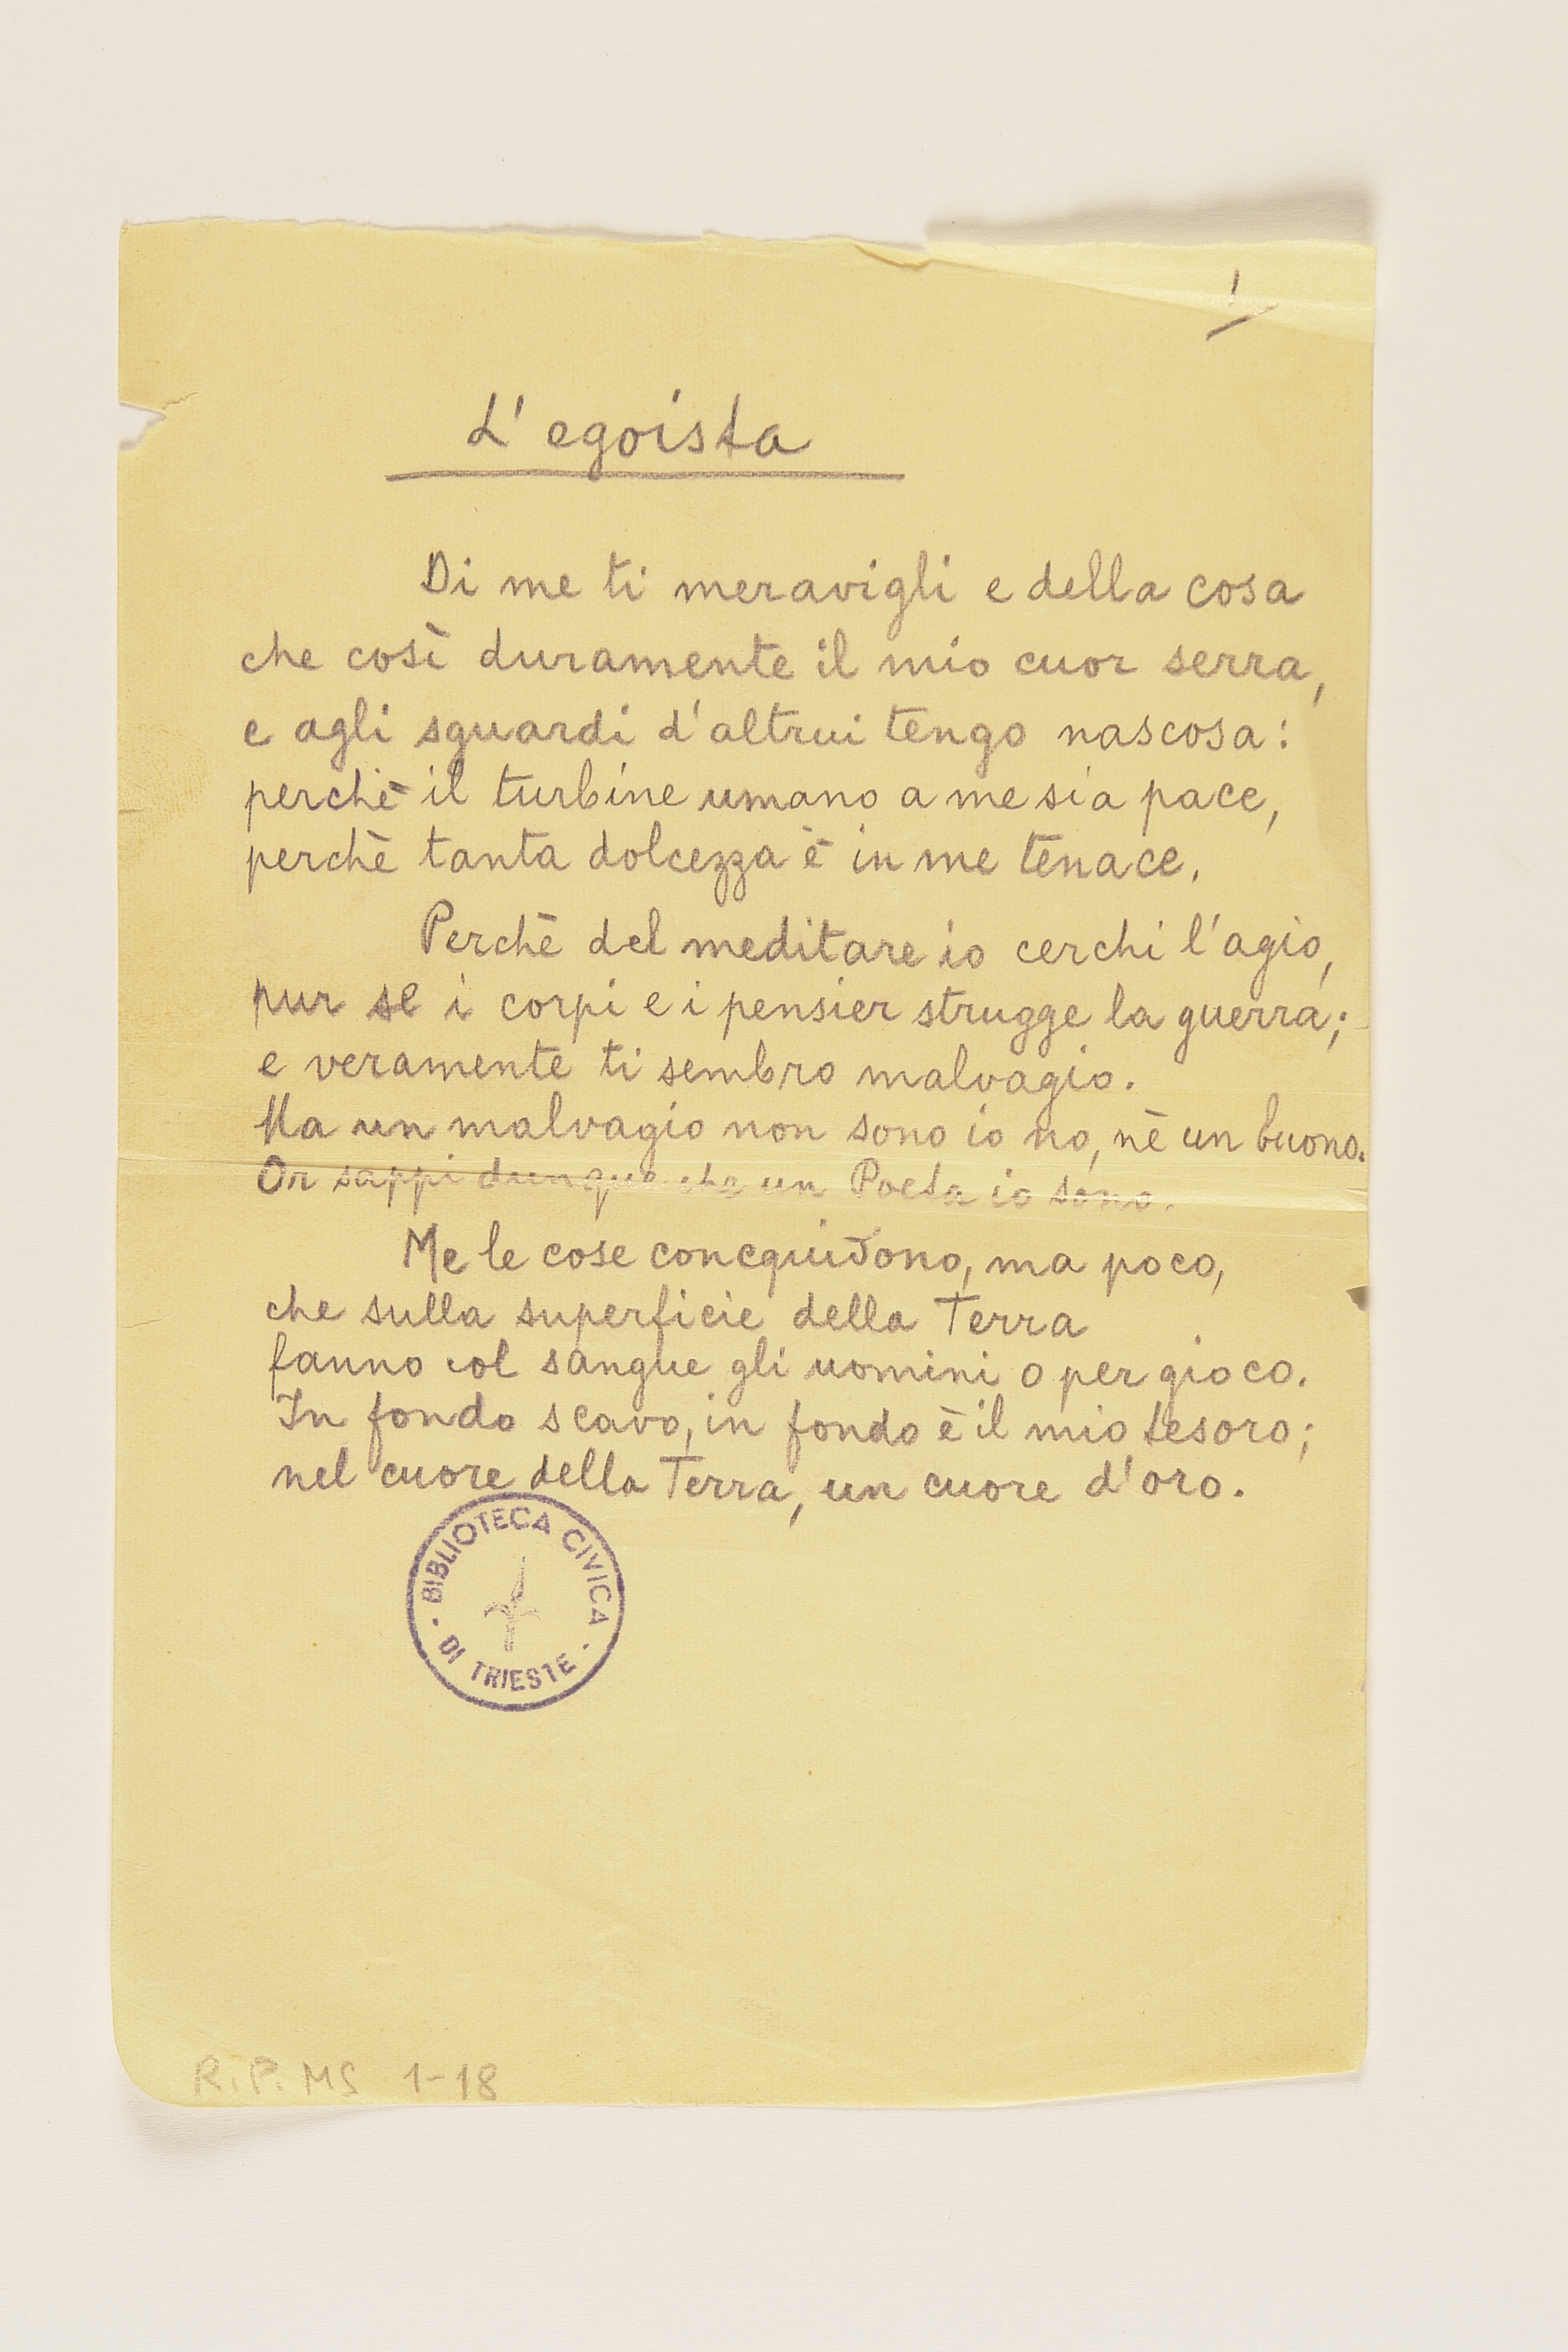 1
L'egoista
Di me ti meravigli e della cosa
che così duramente il mio cuor serra,
e agli sguardi d'altrui tengo nascosa:
perchè il turbine umano a me sia pace,
perchè tanta dolcezza è in me tenace.
Perchè del meditare io cerchi l'agio,
pur se i corpi e i pensier strugge la guerra;
e veramente ti sembro malvagio.
Ma un malvagio non sono io no, nè un buono.
Or sappi dunque che un Poeta io sono.
Me le cose conquidono, ma poco,
che sulla superficie della Terra
fanno col sangue gli uomini o per gioco.
In fondo scavo, in fondo è il mio tesoro;
nel cuore della Terra, un cuore d'oro.
BIBLIOTECA CIVICA
DI TRIESTE
R.P. MS 1-18